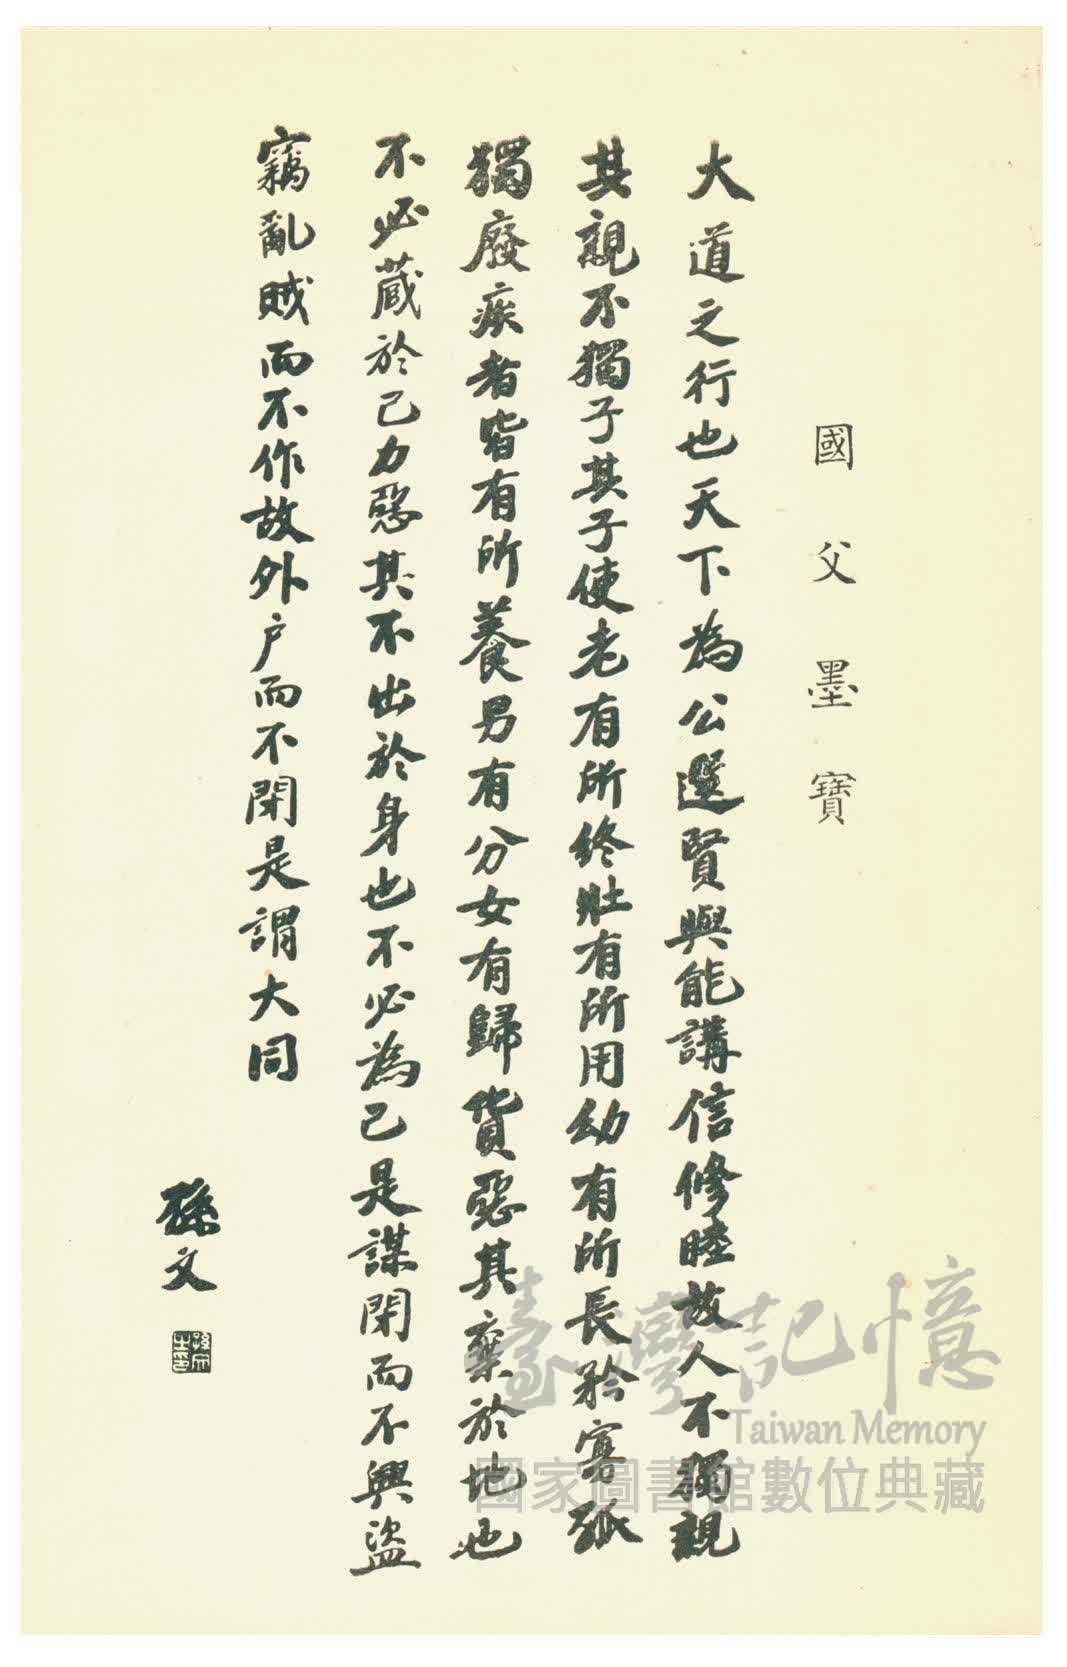 國父墨寶
大道之行也天下為公選賢與能講信修睦故人不獨親
其親不獨子其子使老有所終壯有所用幼有所長矜寡孤
獨廢疾者皆有所養男有分女有歸貨惡其棄於地也
不必藏於己力惡其不出於身也不必為己是謀閉而不興盜
竊亂賊而不作故外户而不閉是謂大同
孫文
臺灣記憶
Taiwan Memory
國家圖書館數位典藏